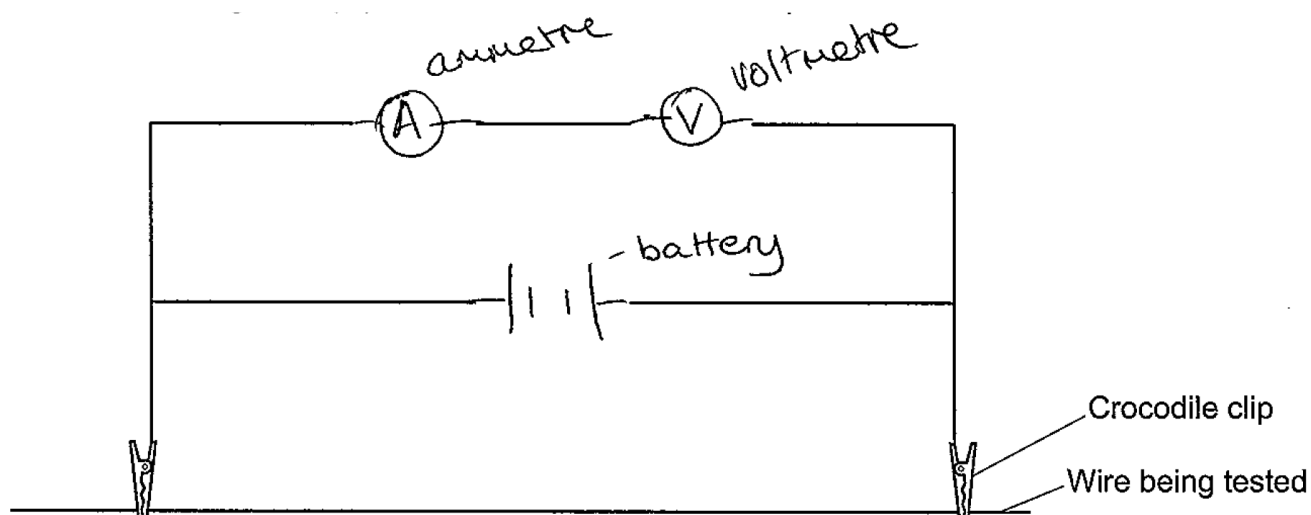 ammetre
voltmetre
A
V
battery
Crocodile clip
Wire being tested